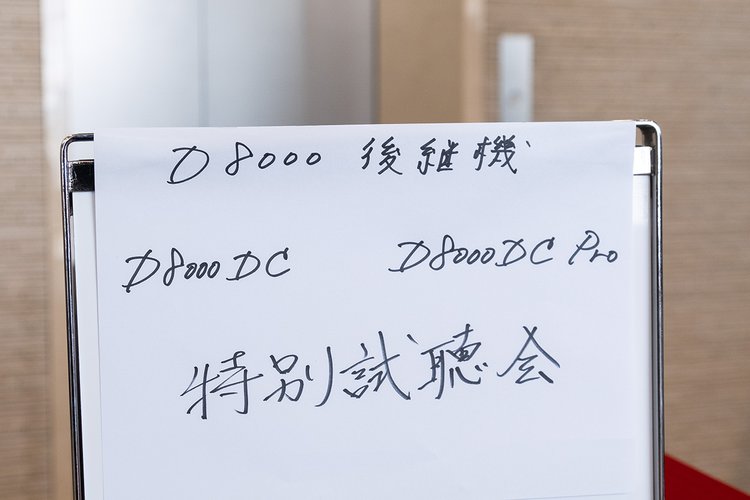 D8000 後継機
D8000DC D8000DC Pro
特別試聴会